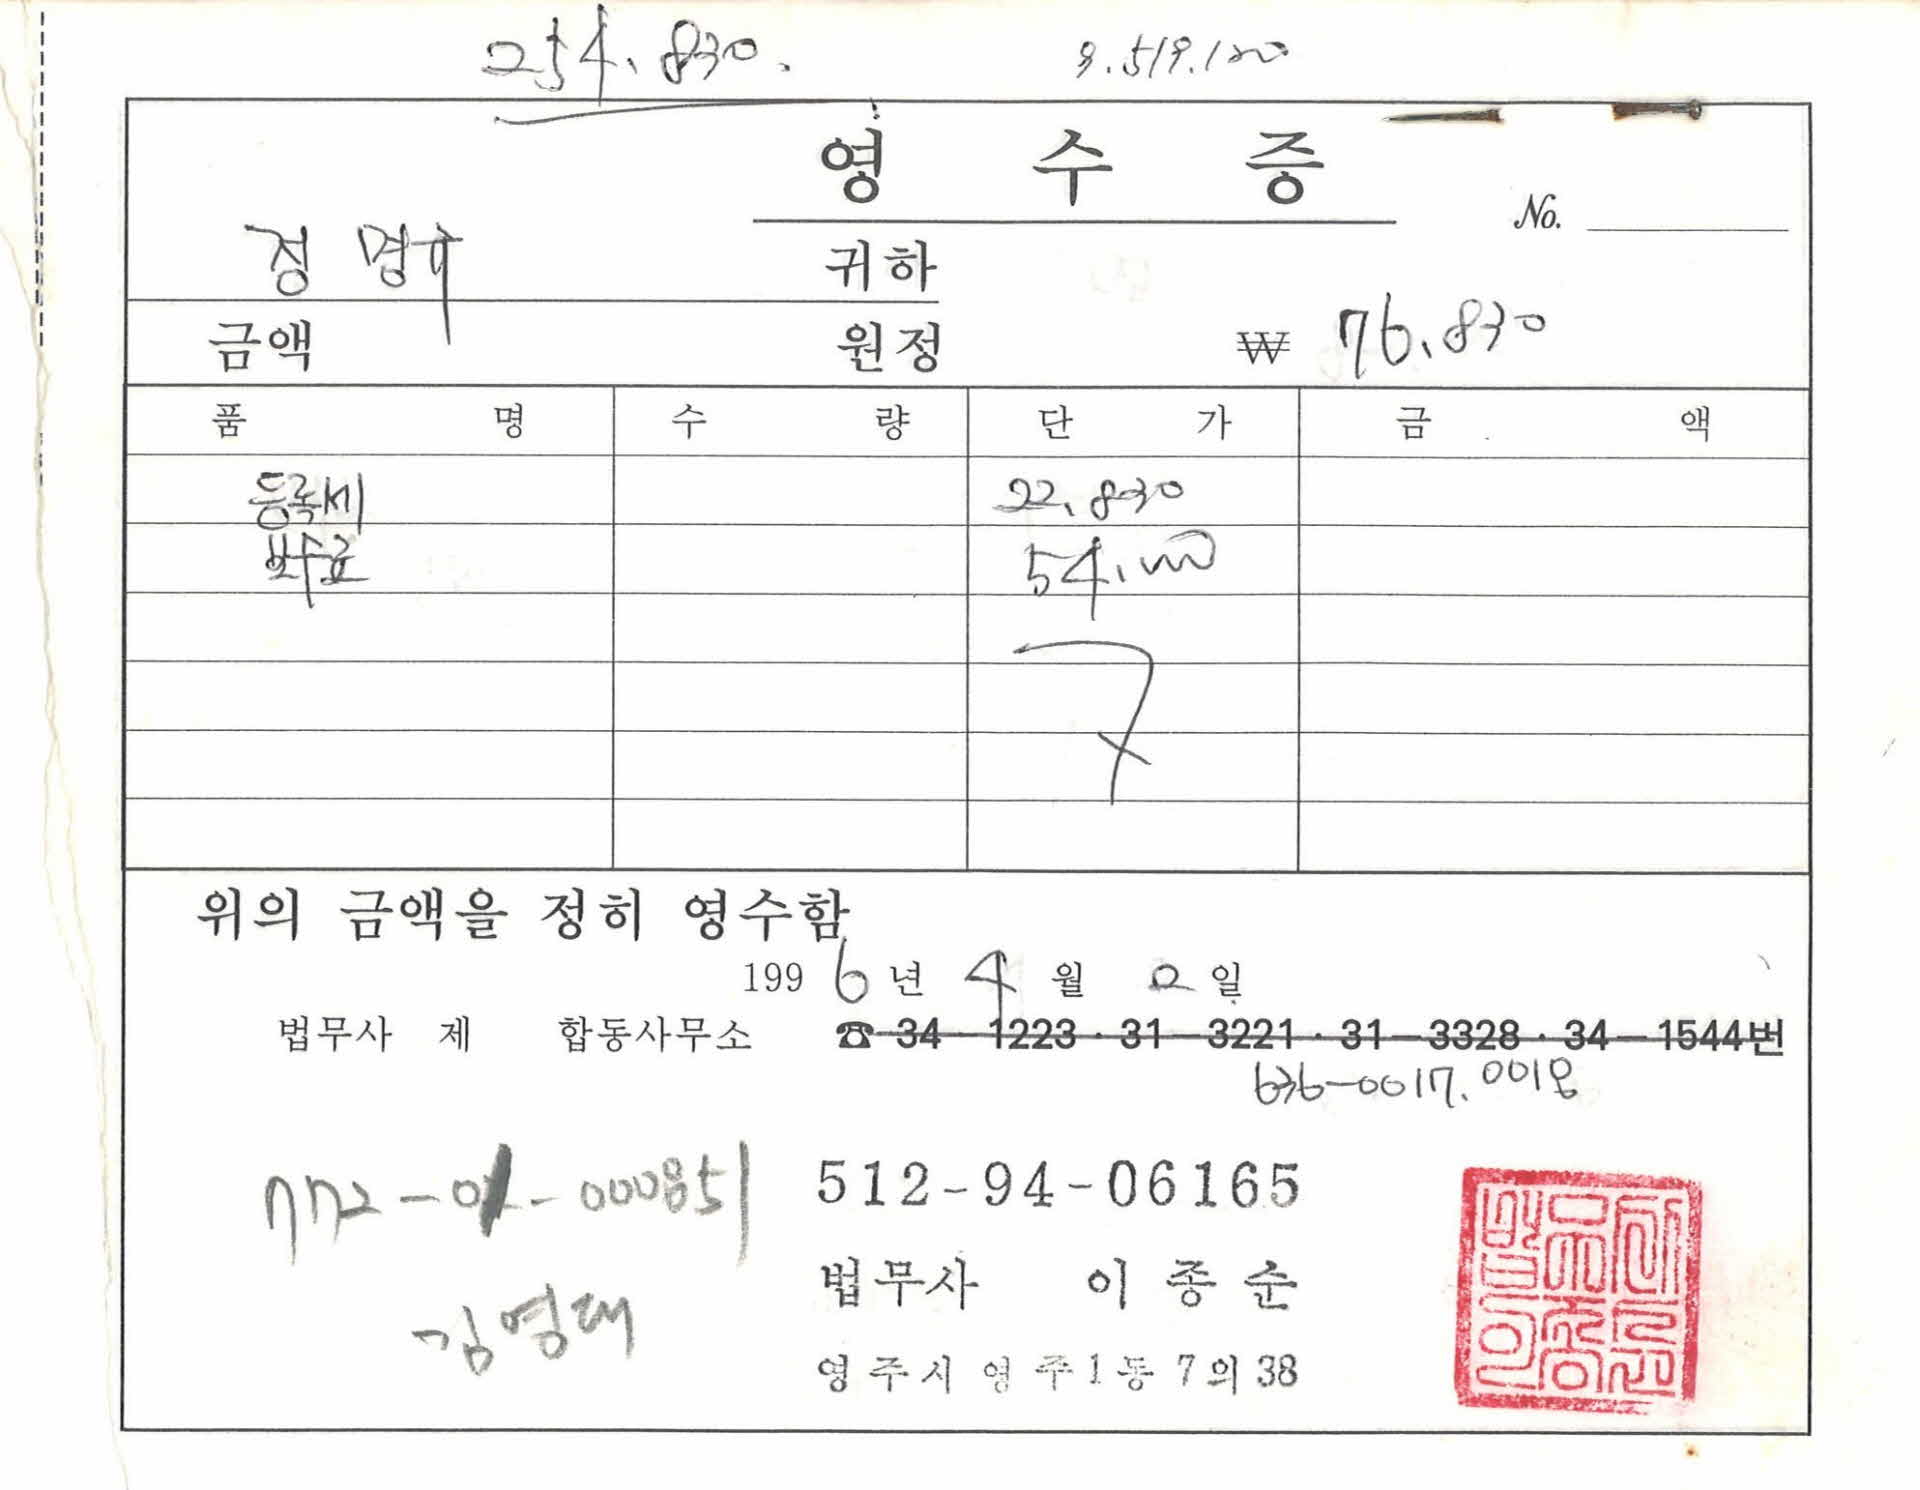 254.830.
9.519.120
영 수 증
No.
정명규 귀하
금액 원정 ₩ 76.830
품 명 수 량 단 가 금 액
등록세 22.830
보수료 54.000
위의 금액을 정히 영수함
199 6 년 4 월 2 일
법무사 제 합동사무소 ☎ 34-1223 · 31-3221 · 31-3328 · 34-1544번
636-0017. 0018
772-01-000851
512-94-06165
법무사 이종순
김영대
영주시 영주1동 7의 38